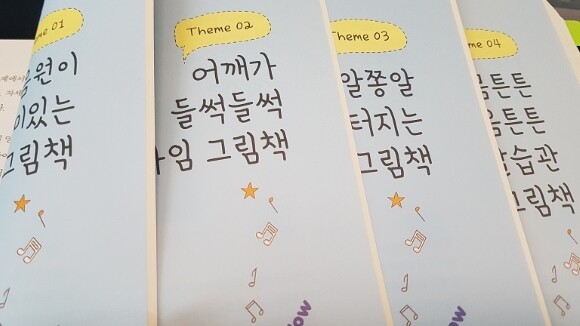 me 01
원이
있는
그림책
Theme 02
어깨가
들썩들썩
라임 그림책
Theme 03
알쫑알
터지는
그림책
me 04
몸튼튼
음튼튼
습관
그림책
ow